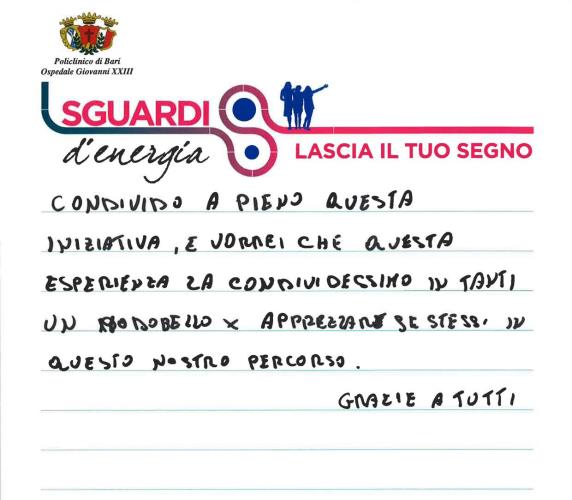 Policlinico di Bari
Ospedale Giovanni XXIII
SGUARDI
d'energia
LASCIA IL TUO SEGNO
CONDIVIDO A PIENO QUESTA
INIZIATIVA, E VORREI CHE QUESTA
ESPERIENZA LA CONDIVIDESSIMO IN TANTI
UN MODOBELLO X APPREZZARE SE STESSI IN
QUESTO NOSTRO PERCORSO.
GRAZIE A TUTTI